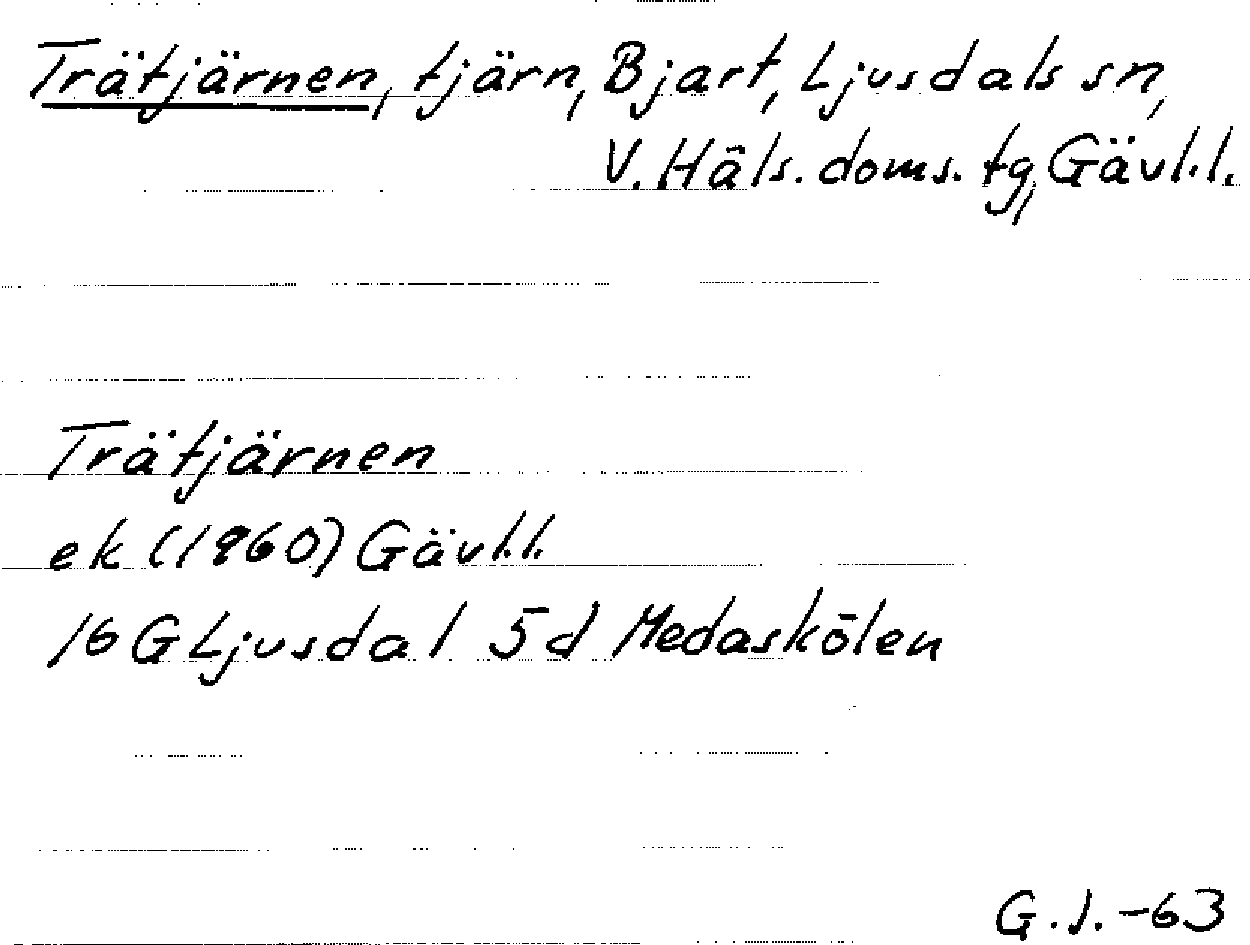 Trätjärnen, tjärn, Bjart, Ljusdals sn,
V. Häls. doms. tg, Gävl.l.
Trätjärnen
ek (1960) Gävl.l.
16 G Ljusdal 5d Medaskölen
G.J. -63